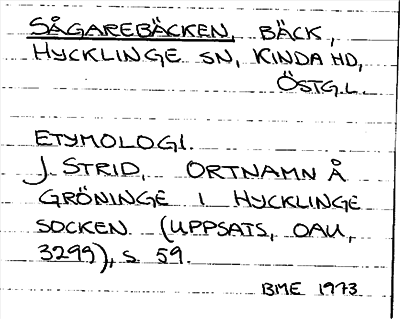 SÅGAREBÄCKEN, BÄCK,
HYCKLINGE SN, KINDA HD,
ÖSTG.L.
ETYMOLOGI.
J. STRID, ORTNAMN Å
GRÖNINGE I HYCKLINGE
SOCKEN. (UPPSATS, OAU,
3299), s 59.
BME 1973